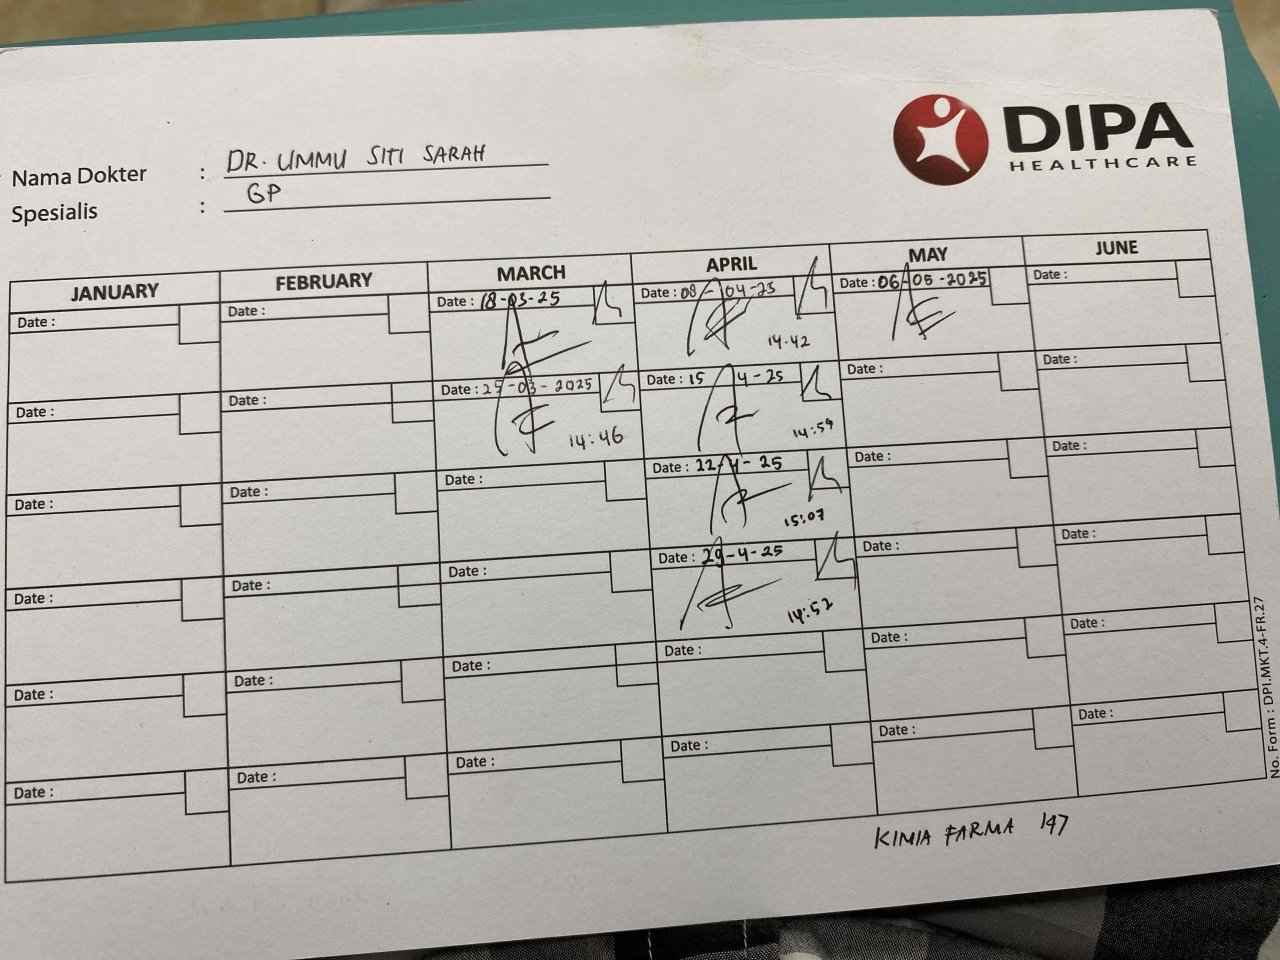 DIPA
HEALTHCARE
Nama Dokter : DR. UMMU SITI SARAH
Spesialis : GP
JANUARY FEBRUARY MARCH APRIL MAY JUNE
Date : Date : Date : 18-03-25 Date : 08-04-25 Date : 06-05-2025 Date :
14.42
Date : Date : Date : 25-03-2025 Date : 15 4-25 Date : Date :
14:46 14:59
Date : Date : Date : Date : 22-4-25 Date : Date :
15:07
Date : Date : Date : Date : 29-4-25 Date : Date :
14:52
Date : Date : Date : Date : Date : Date :
Date : Date : Date : Date : Date : Date :
KIMIA FARMA 147
No. Form : DPI.MKT.4-FR.27